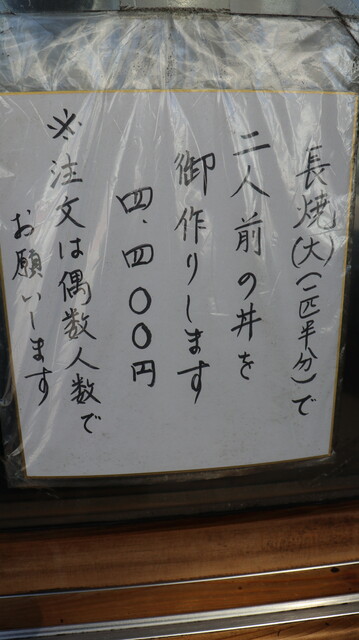 長焼(大)(一匹半分)で
二人前の丼を
御作りします
四、四〇〇円
※注文は偶数人数で
お願いします